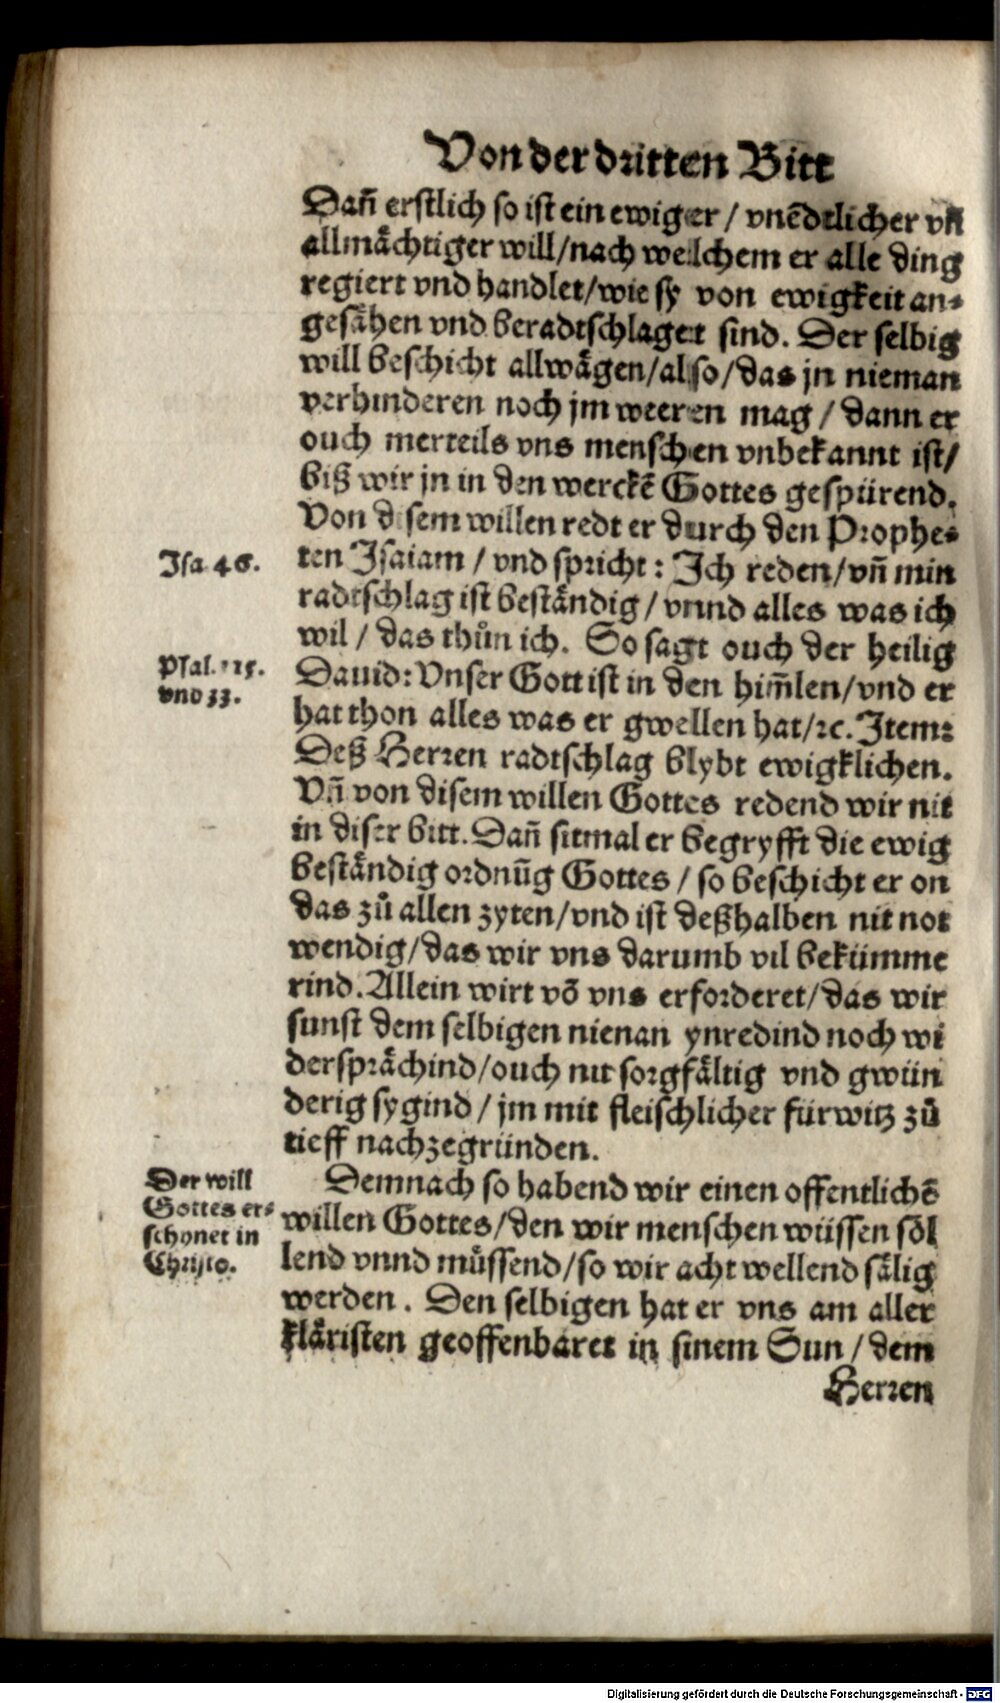 Von der dritten Bitt
Dañ erstlich so ist ein ewiger / vnēdtlicher vñ
allmächtiger will / nach welchem er alle ding
regiert vnd handlet / wie sy von ewigkeit an-
gesähen vnd beradtschlaget sind. Der selbig
will beschicht allwägen / also / das jn nieman
verhinderen noch jm weeren mag / dann er
ouch merteils vns menschen vnbekannt ist /
biß wir jn in den werckē Gottes gespürend.
Von disem willen redt er durch den Prophe-
Isa 46.
ten Isaiam / vnd spricht: Ich reden / vñ min
radtschlag ist beständig / vnnd alles was ich
wil / das thůn ich. So sagt ouch der heilig
Psal. 115.
vnd 33.
Dauid: Vnser Gott ist in den him̃len / vnd er
hat thon alles was er gwellen hat / ꝛc. Item:
Deß Herren radtschlag blybt ewigklichen.
Vñ von disem willen Gottes redend wir nit
in diser bitt. Dañ sitmal er begryfft die ewig
beständig ordnūg Gottes / so beschicht er on
das zů allen zyten / vnd ist deßhalben nit not
wendig / das wir vns darumb vil bekümme
rind. Allein wirt vō vns erforderet / das wir
sunst dem selbigen nienan ynredind noch wi
dersprächind / ouch nit sorgfältig vnd gwün
derig sygind / jm mit fleischlicher fürwitz zů
tieff nachzegründen.
Der will
Gottes er-
schynet in
Christo.
Demnach so habend wir einen offentlichē
willen Gottes / den wir menschen wüssen söl
lend vnnd müssend / so wir acht wellend sälig
werden. Den selbigen hat er vns am aller
kläristen geoffenbaret in sinem Sun / dem
Herren
Digitalisierung gefördert durch die Deutsche Forschungsgemeinschaft - DFG